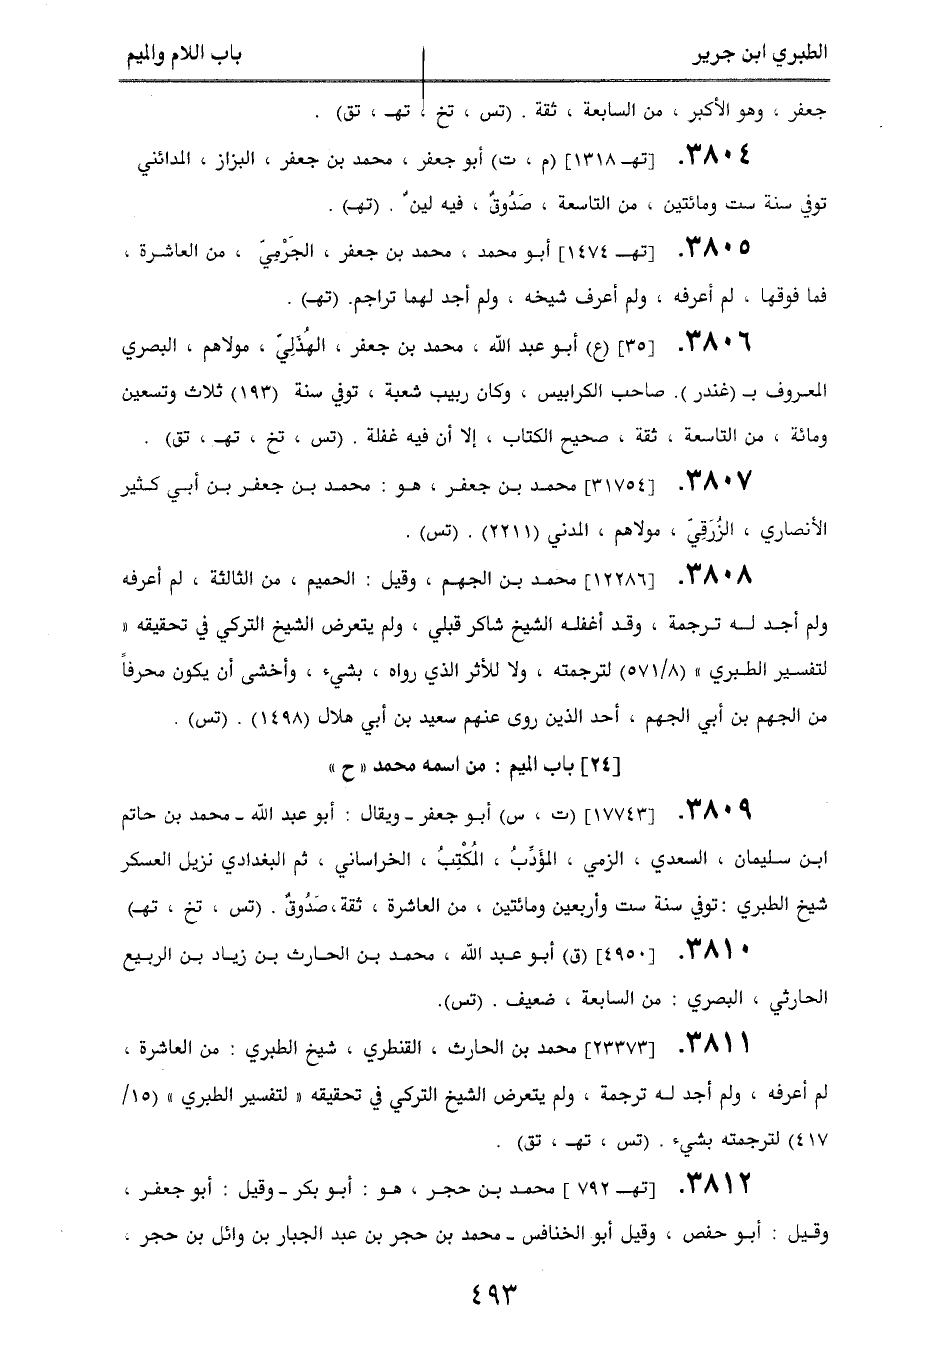 الطبري ابن جرير
باب اللام والميم
جعفر ، وهو الأكبر ، من السابعة ، ثقة . (تس ، تخ ، تهـ ، تق) .
٣٨٠٤. [تهـ ١٣١٨] (م ، ت) أبو جعفر ، محمد بن جعفر ، البزاز ، المدائني
توفي سنة ست ومائتين ، من التاسعة ، صَدُوقٌ ، فيه لينٌ . (تهـ) .
٣٨٠٥. [تهـ ١٤٧٤] أبو محمد ، محمد بن جعفر ، الجَرْمِيّ ، من العاشرة ،
فما فوقها ، لم أعرفه ، ولم أعرف شيخه ، ولم أجد لهما تراجم. (تهـ) .
٣٨٠٦. [٣٥] (ع) أبو عبد الله ، محمد بن جعفر ، الهُذَلِيّ ، مولاهم ، البصري
المعروف بـ (غندر ). صاحب الكرابيس ، وكان ربيب شعبة ، توفي سنة (١٩٣) ثلاث وتسعين
ومائة ، من التاسعة ، ثقة ، صحيح الكتاب ، إلا أن فيه غفلة . (تس ، تخ ، تهـ ، تق) .
٣٨٠٧. [٣١٧٥٤] محمد بن جعفر ، هو : محمد بن جعفر بن أبي كثير
الأنصاري ، الزُرَقِيّ ، مولاهم ، المدني (٢٢١١) . (تس) .
٣٨٠٨. [١٢٢٨٦] محمد بن الجهم ، وقيل : الحميم ، من الثالثة ، لم أعرفه
ولم أجد له ترجمة ، وقد أغفله الشيخ شاكر قبلي ، ولم يتعرض الشيخ التركي في تحقيقه «
لتفسير الطبري » (٥٧١/٨) لترجمته ، ولا للأثر الذي رواه ، بشيء ، وأخشى أن يكون محرفاً
من الجهم بن أبي الجهم ، أحد الذين روى عنهم سعيد بن أبي هلال (١٤٩٨) . (تس) .
[٢٤] باب الميم : من اسمه محمد « ح »
٣٨٠٩. [١٧٧٤٣] (ت ، س) أبو جعفر ـ ويقال : أبو عبد الله ـ محمد بن حاتم
ابن سليمان ، السعدي ، الزمي ، المؤَدِّبُ ، المُكْتِبُ ، الخراساني ، ثم البغدادي نزيل العسكر
شيخ الطبري : توفي سنة ست وأربعين ومائتين ، من العاشرة ، ثقة ، صَدُوقٌ . (تس ، تخ ، تهـ)
٣٨١٠. [٤٩٥٠] (ق) أبو عبد الله ، محمد بن الحارث بن زياد بن الربيع
الحارثي ، البصري : من السابعة ، ضعيف . (تس).
٣٨١١. [٢٣٣٧٣] محمد بن الحارث ، القنطري ، شيخ الطبري : من العاشرة ،
لم أعرفه ، ولم أجد له ترجمة ، ولم يتعرض الشيخ التركي في تحقيقه « لتفسير الطبري » (١٥/
٤١٧) لترجمته بشيء . (تس ، تهـ ، تق) .
٣٨١٢. [تهـ ٧٩٢ ] محمد بن حجر ، هو : أبو بكر ـ وقيل : أبو جعفر ،
وقيل : أبو حفص ، وقيل أبو الخنافس ـ محمد بن حجر بن عبد الجبار بن وائل بن حجر ،
٤٩٣